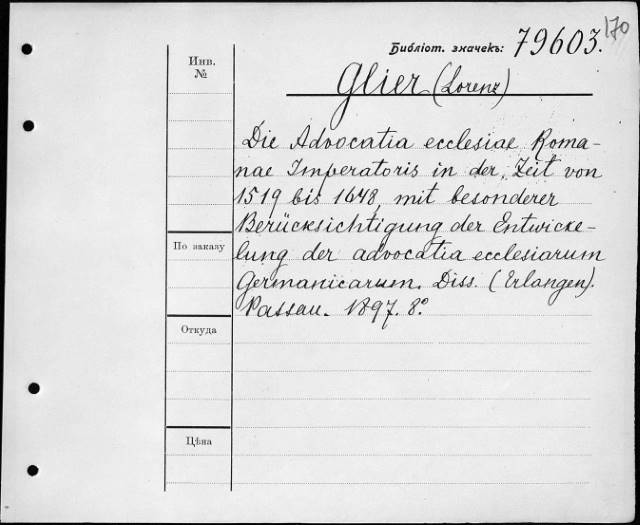 170
Библіот. значекъ: 79603.
Инв.
№
Glier (Lorenz)
Die Advocatia ecclesiae Roma-
nae Imperatoris in der Zeit von
1519 bis 1648, mit besonderer
Berücksichtigung der Entwicke-
lung der advocatia ecclesiarum
Germanicarum. Diss. (Erlangen).
Passau. 1897. 8º
По заказу
Откуда
Цѣна